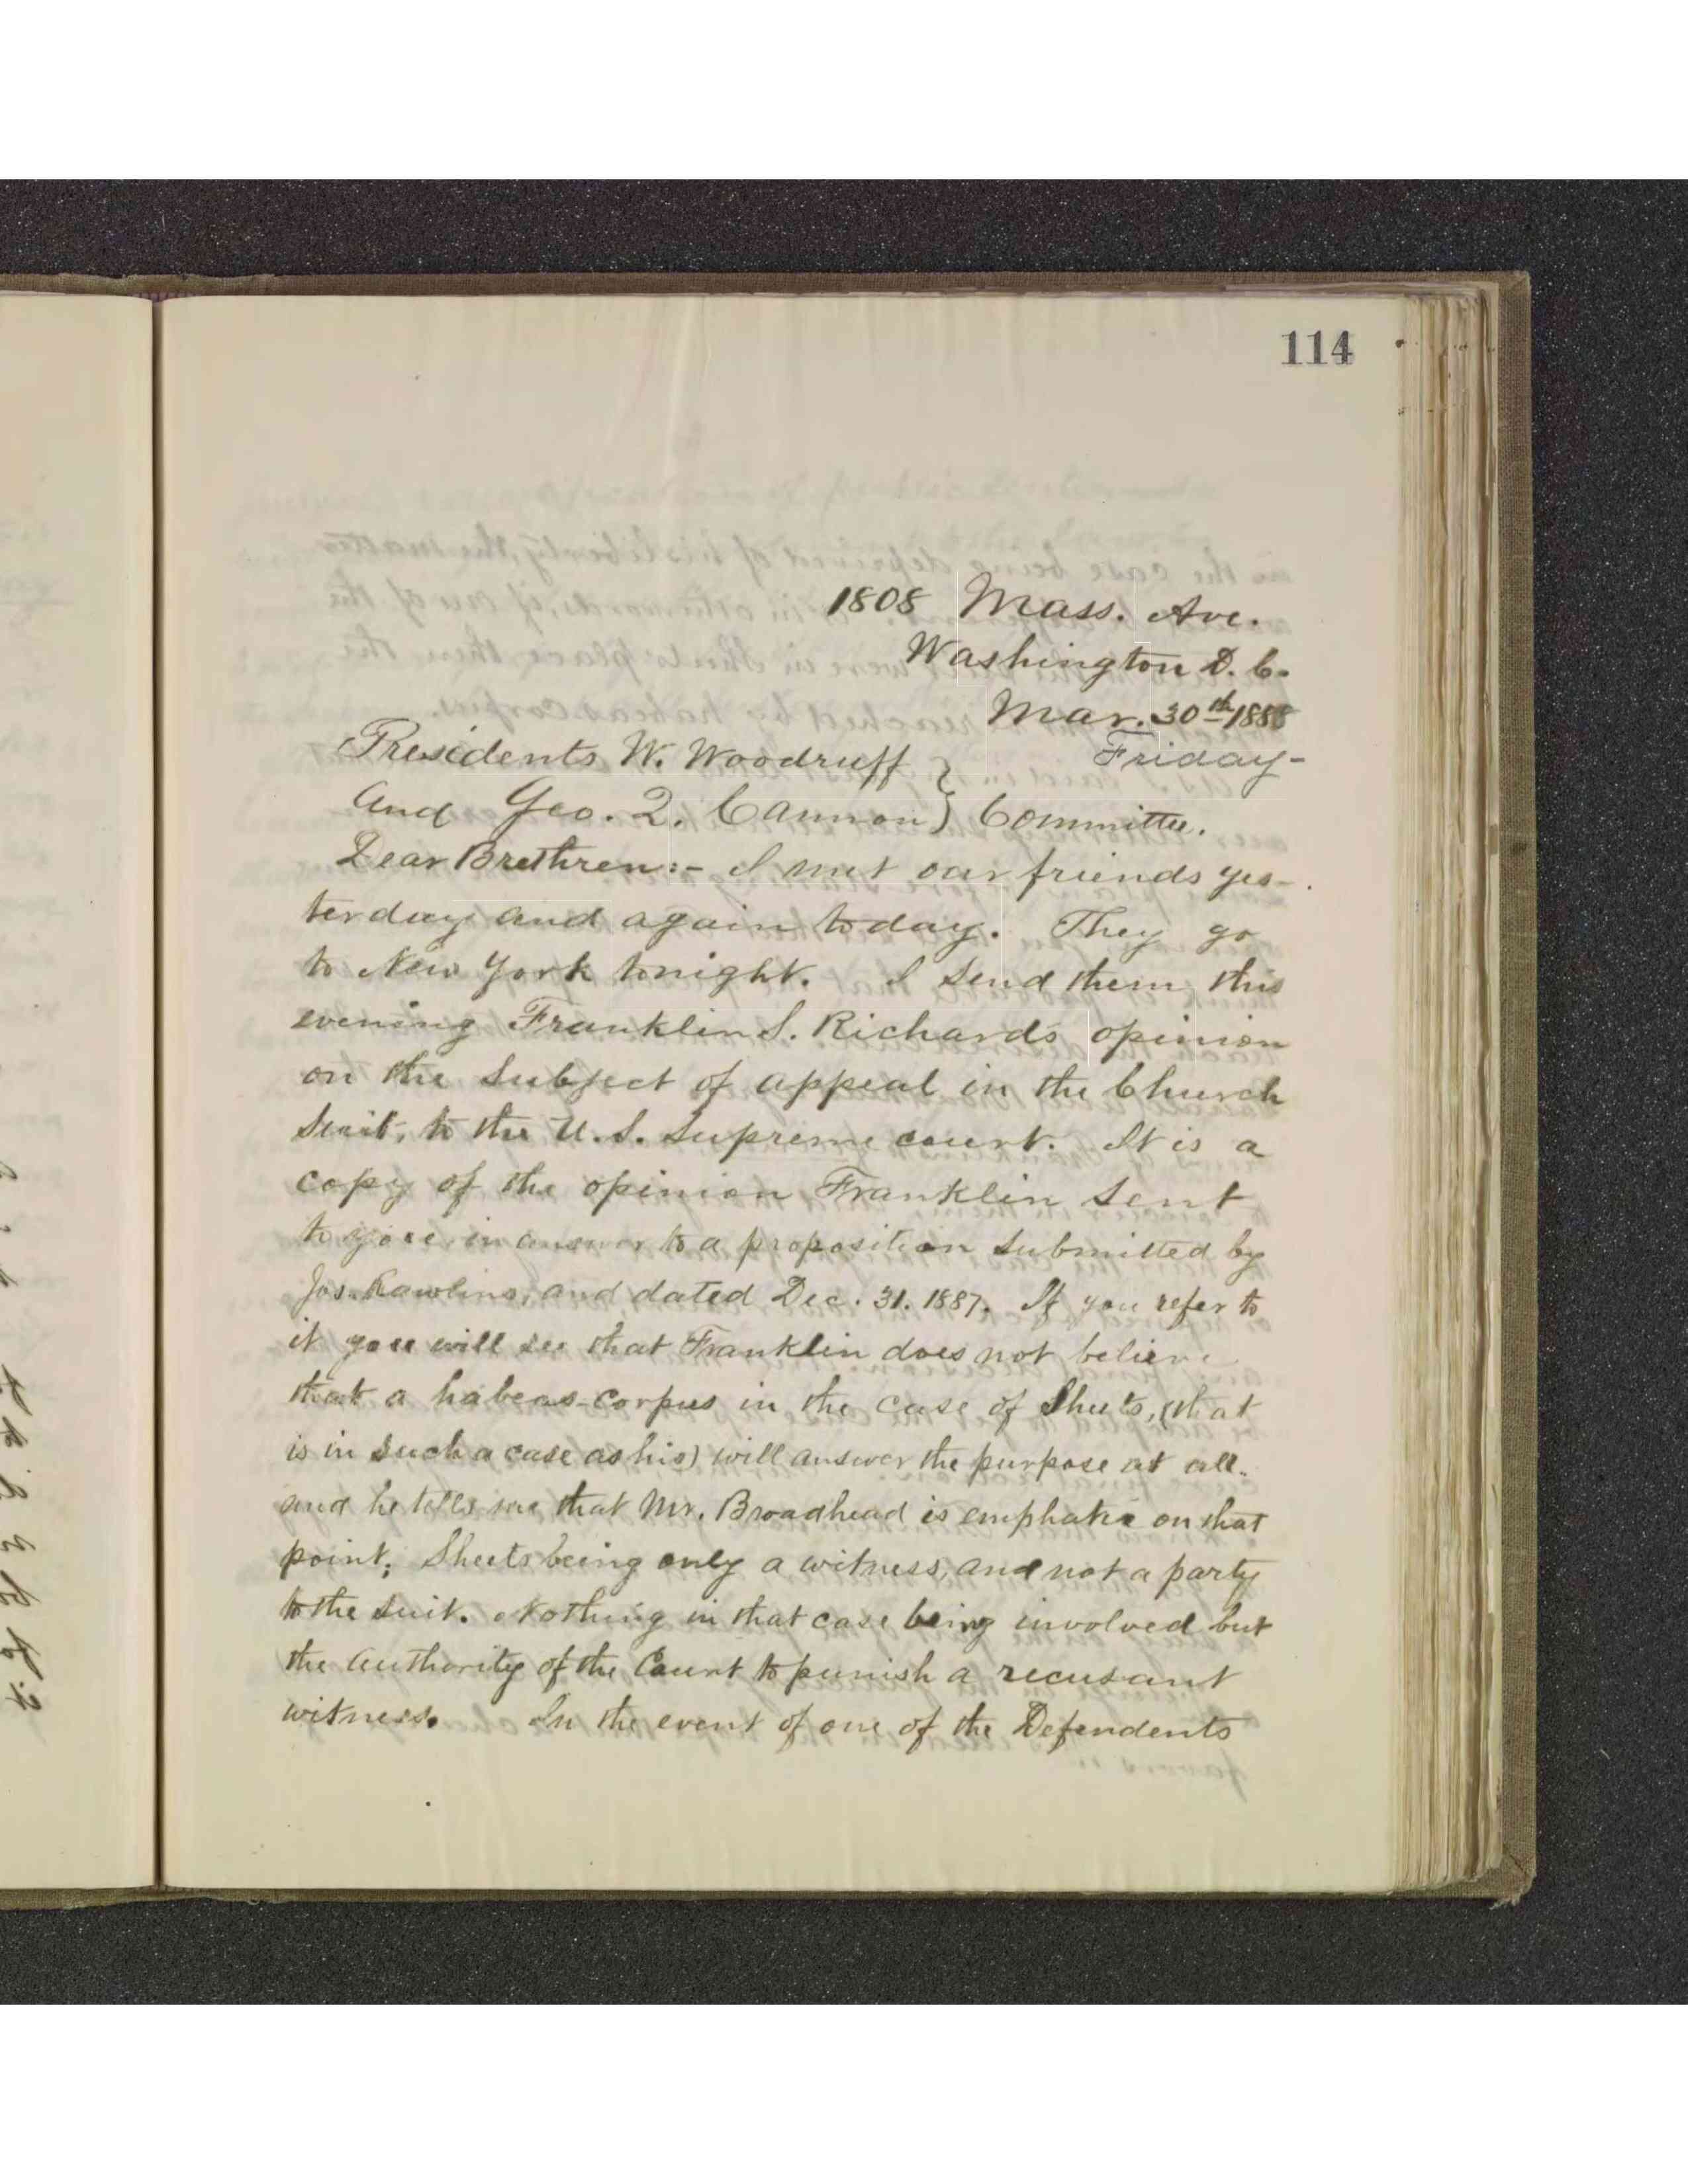 114
1808 Mass. Ave.
Washington D. C.
Mar. 30th 1888
Friday-
Presidents W. Woodruff
And Geo. Q. Cannon } Committee.
Dear Brethren:- I met our friends yes-
terday and again today. They go
to New York tonight. I send them this
evening Franklin S. Richards opinion
on the subject of appeal in the Church
suit, to the U. S. Supreme court. It is a
copy of the opinion Franklin sent
to you in answer to a proposition submitted by
Jos. Rawlins, and dated Dec. 31. 1887. If you refer to
it you will see that Franklin does not believe
that a habeas-corpus in the case of Sheets, (that
is in such a case as his) will answer the purpose at all.
and he tells me that Mr. Broadhead is emphatic on that
point; Sheets being only a witness, and not a party
to the suit. Nothing in that case being involved but
the authority of the Court to punish a recusant
witness. In the event of one of the Defendents